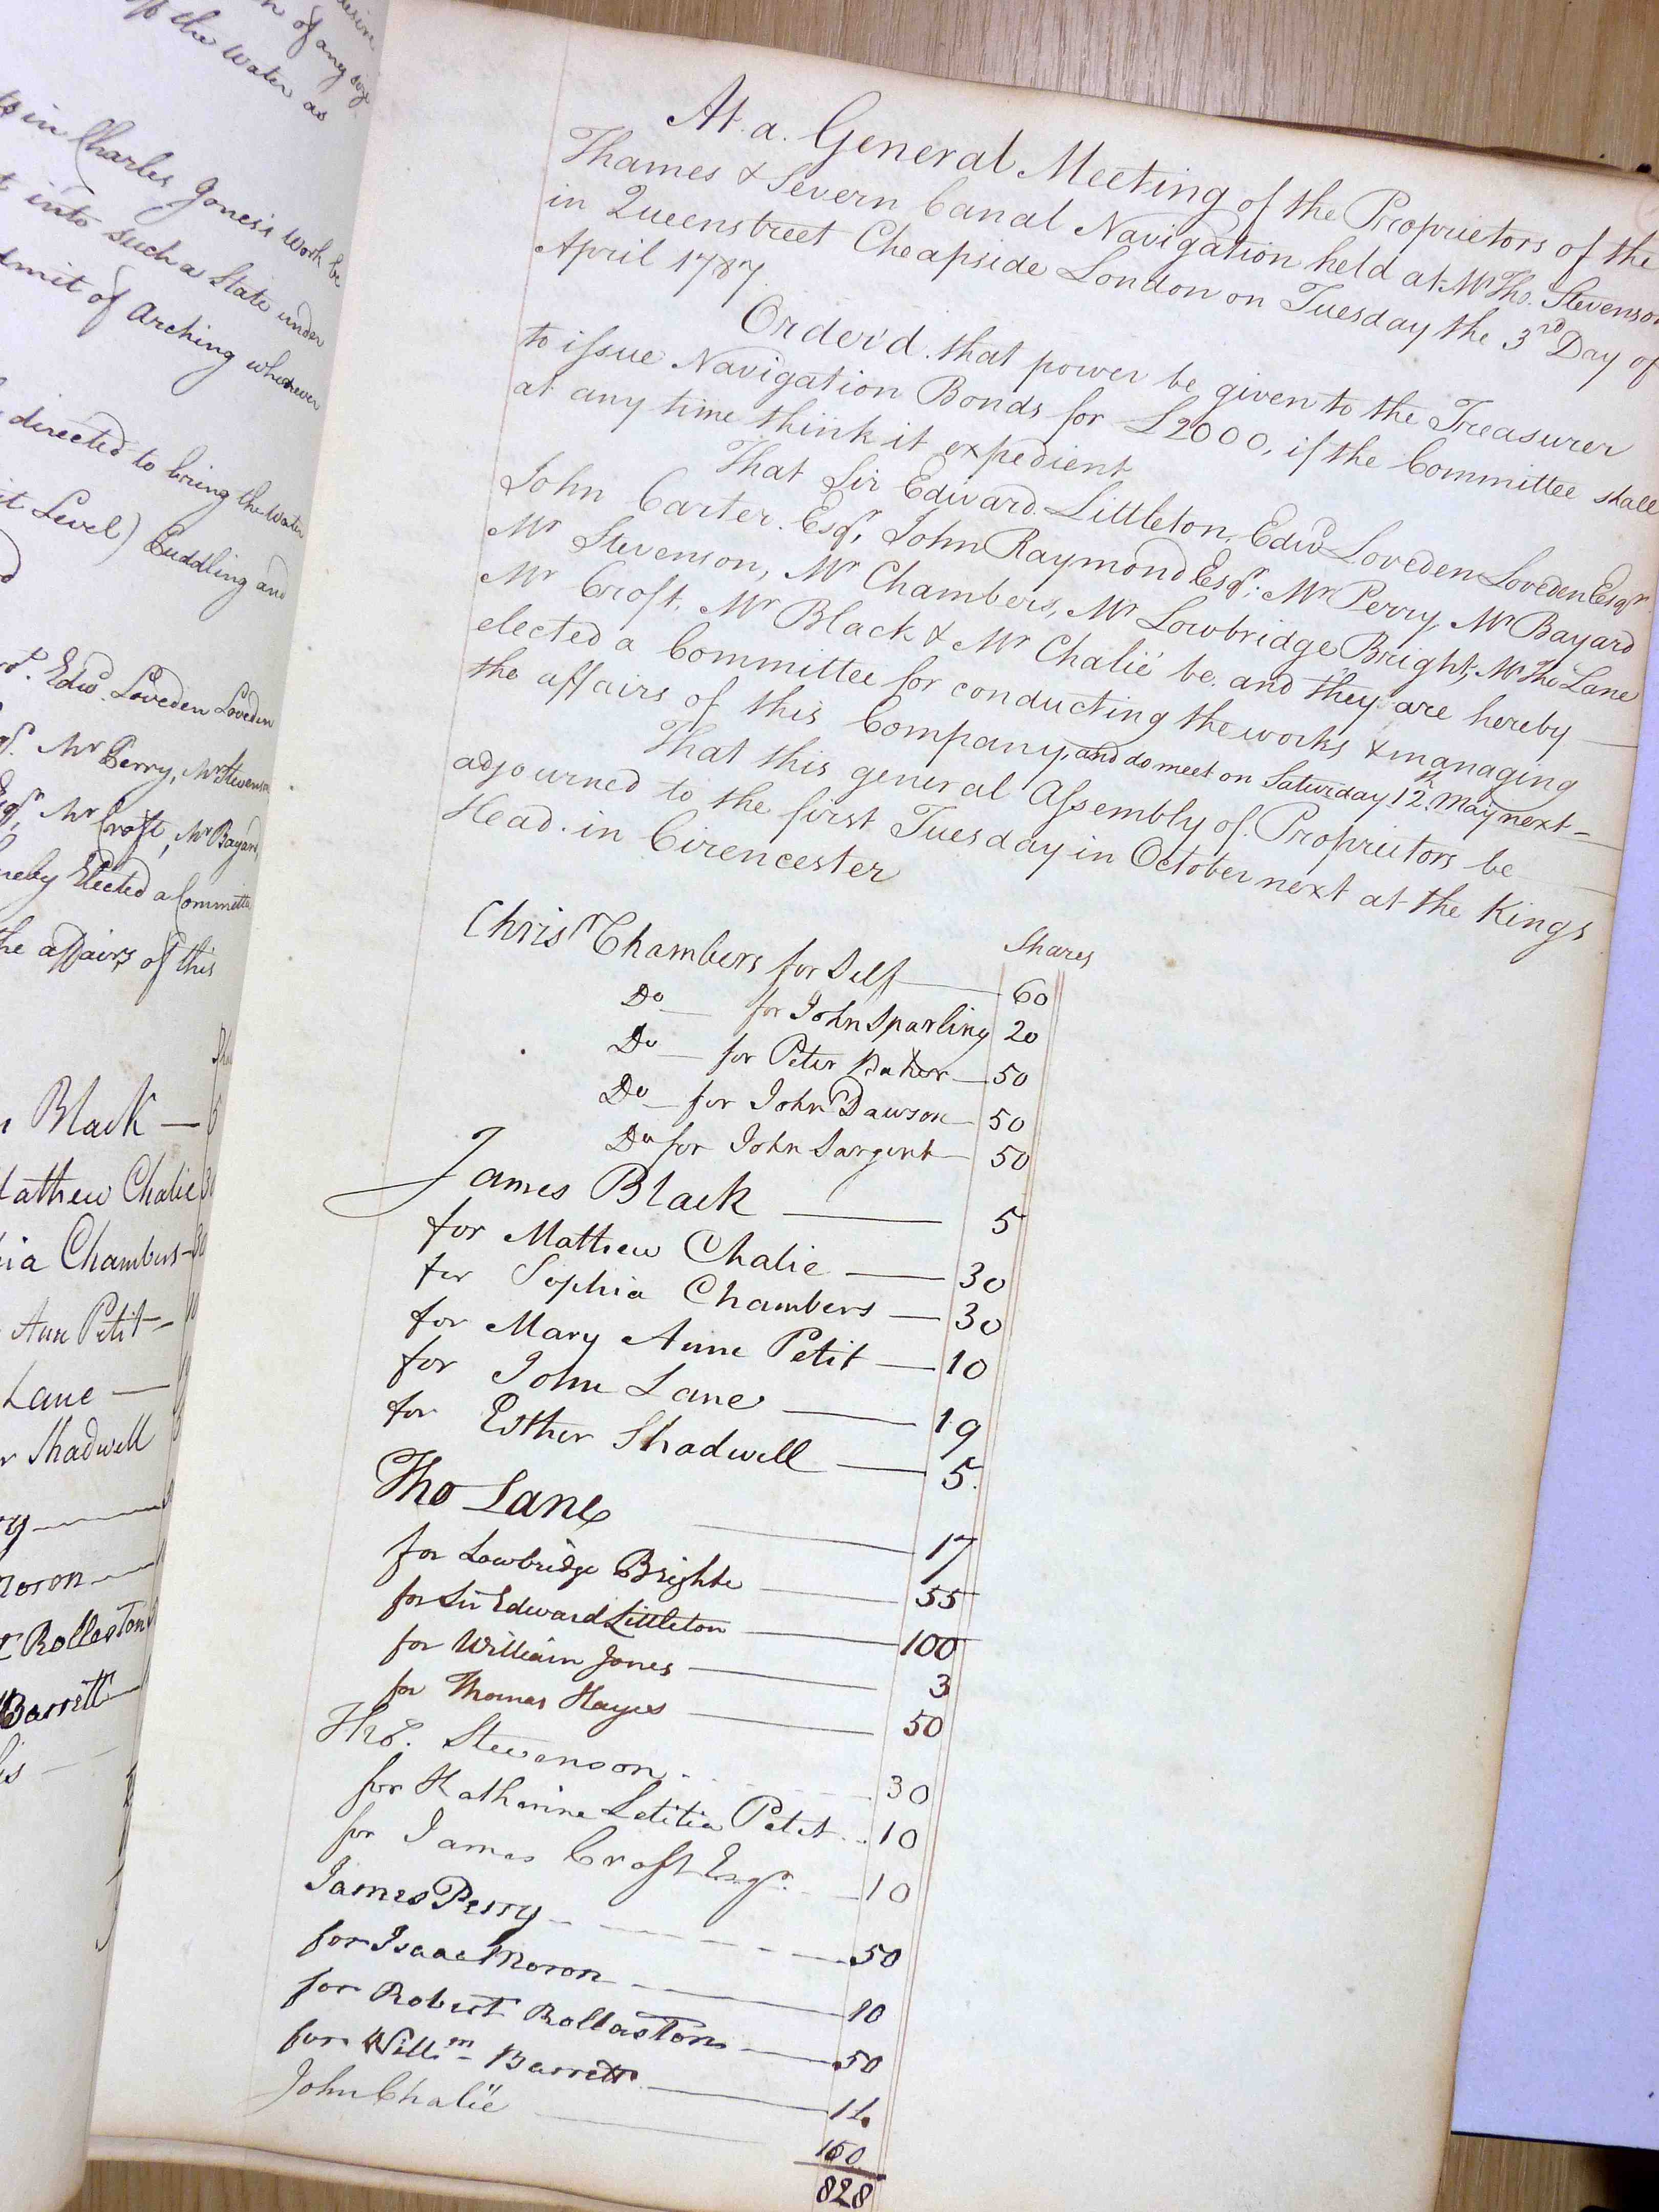 of any
off the Water as
in Charles Jones's Work be
into such a State under
admit of Arching whenever
directed to bring the Water
Level) Puddling and
Edwd. Loveden Loveden
Mr Perry, Mr Stevenson
Mr Croft, Mr Bayard,
hereby Elected a Committee
the affairs of this
Black — 5
Mathew Chalie 30
Chambers — 30
Ann Petit — 10
Lane —
Shadwell
Moron
Rollaston
Barrett
At a General Meeting of the Proprietors of the
Thames & Severn Canal Navigation held at Mr Tho. Stevenson
in Queenstreet Cheapside London on Tuesday the 3rd Day of
April 1787.
Order'd that power be given to the Treasurer
to issue Navigation Bonds for £2000, if the Committee shall
at any time think it expedient
That Sir Edward Littleton, Edwd Loveden Loveden Esqr
John Carter Esqr, John Raymond Esqr; Mr Perry, Mr Bayard
Mr Stevenson, Mr Chambers, Mr Lowbridge Bright, Mr Tho Lane
Mr Croft, Mr Black & Mr Chalié be, and they are hereby —
elected a Committee for conducting the works & managing
the affairs of this Company, and do meet on Saturday 12th May next —
That this general Assembly of Proprietors be —
adjourned to the first Tuesday in October next at the Kings
Head in Cirencester
Shares
Chrisr Chambers for Self — 60
Do — for John Sparling 20
Do — for Peter Baker — 50
Do — for John Dawson — 50
Do for John Sargent — 50
James Black — 5
for Mathew Chalie — 30
for Sophia Chambers — 30
for Mary Anne Petit — 10
for John Lane — 19
for Esther Shadwell — 5.
Tho Lane — 17
for Lowbridge Brighte — 55
for Sir Edward Littleton — 100
for William Jones — 3
for Thomas Hayes — 50
Tho. Stevenson 30
for Katherine Letitia Petit 10
for James Croft Esqr. — 10
James Perry — 50
for Isaac Moron — 10
for Robert Rollaston — 50
for Willm Barrett — 14
John Chalië — 100
828